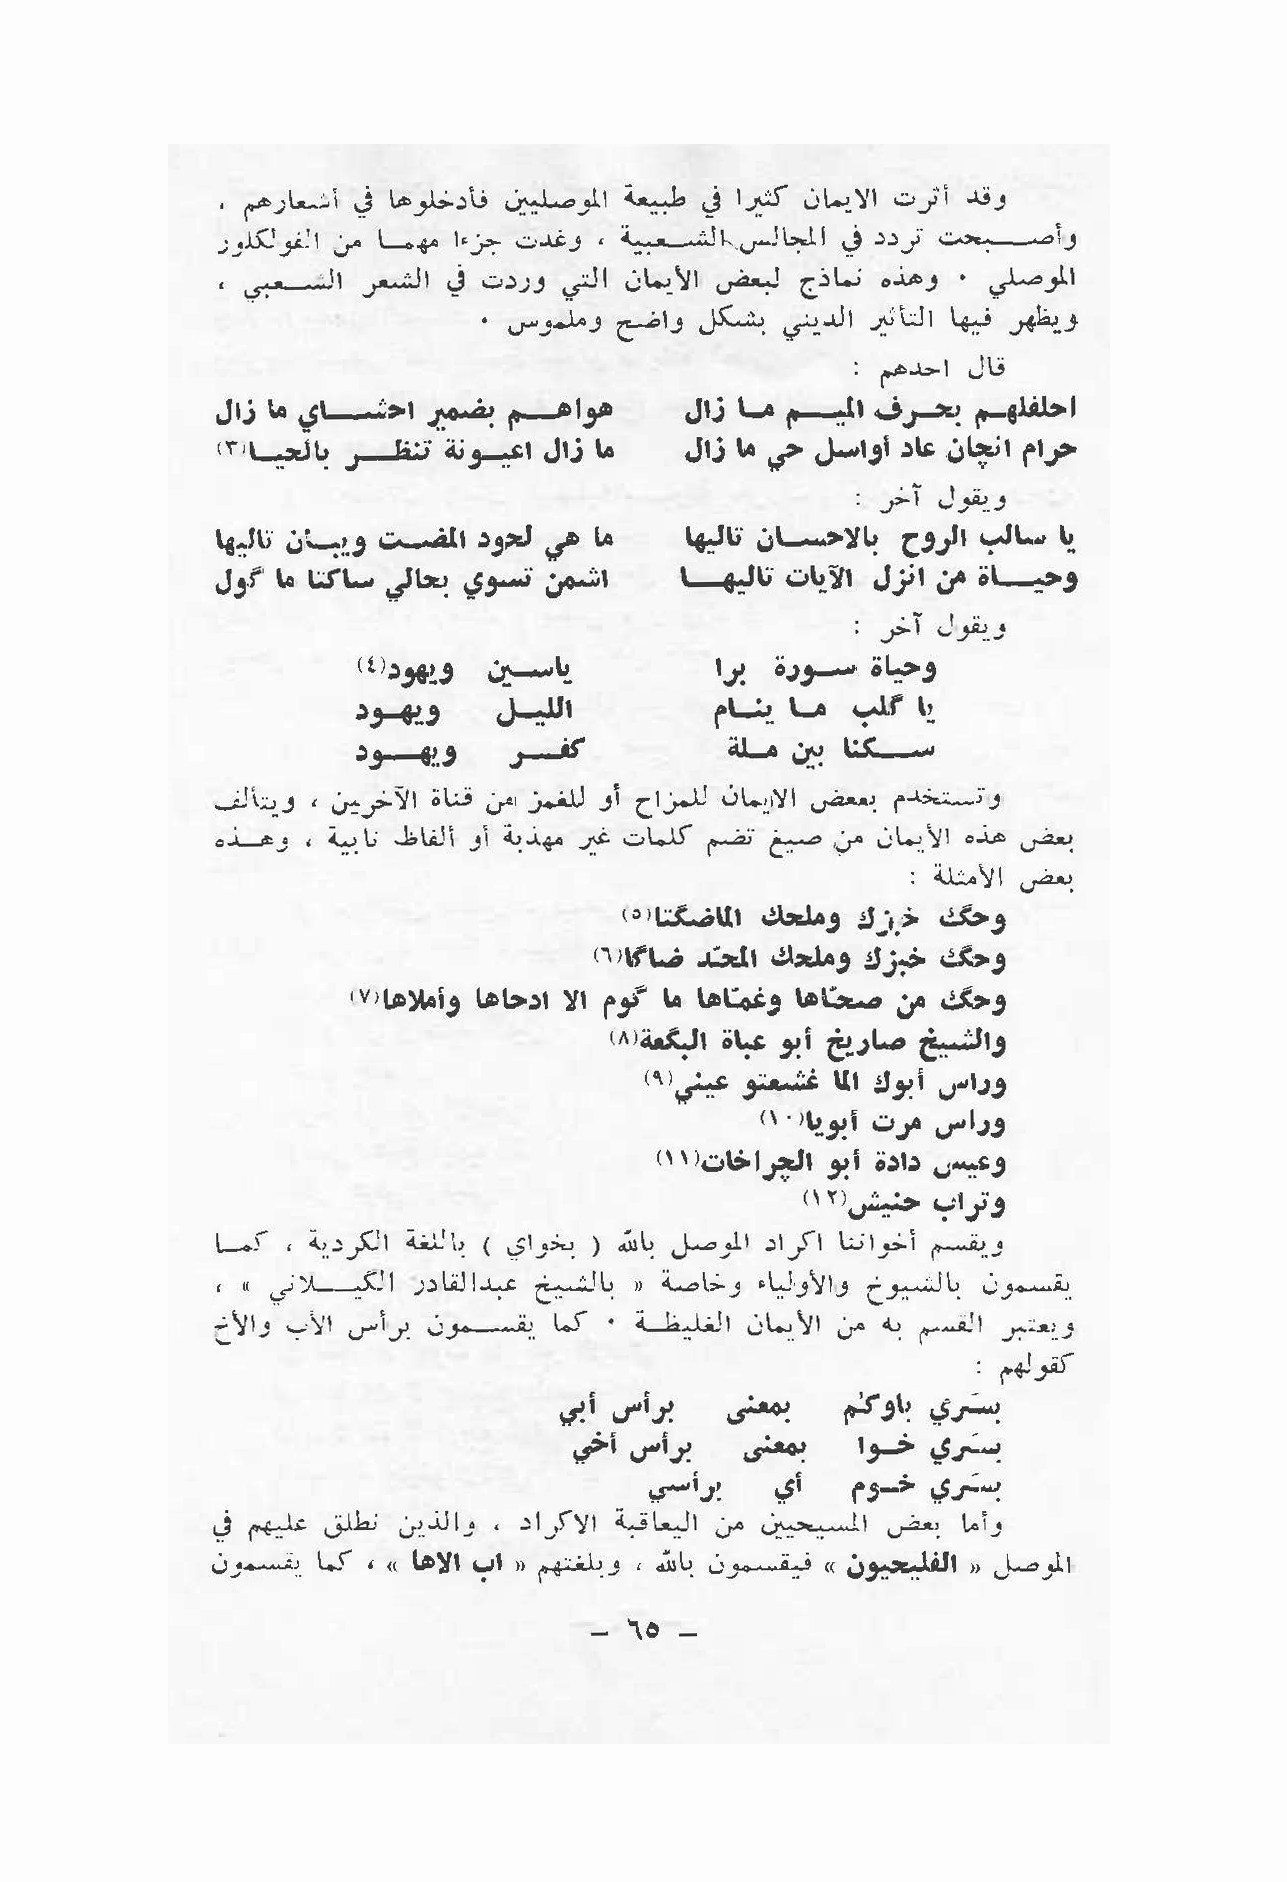 وقد أثرت الايمان كثيرا في طبيعة الموصليين فأدخلوها في أشعارهم ،
وأصبحت تردد في المجالس الشعبية ، وغدت جزءا مهما من الفولكلور
الموصلي ٠ وهذه نماذج لبعض الأيمان التي وردت في الشعر الشعبي ،
ويظهر فيها التأثير الديني بشكل واضح وملموس ٠
قال احدهم :
احلفلهم بحرف الميم ما زال هواهم بضمير احشاي ما زال
حرام انچان عاد أواسل حي ما زال ما زال اعيونة تنظر بالحيا(٣)
ويقول آخر :
يا سالب الروح بالاحسان تاليها ما هي لحود المضت ويبأن تاليها
وحياة من انزل الآيات تاليها اشمن تسوي بحالي ساكتا ما گول
ويقول آخر :
وحياة سورة برا ياسين ويهود(٤)
يا گلب ما ينام الليل ويهود
سكنا بين ملة كفر ويهود
وتستخدم بعض الايمان للمزاح أو للغمز من قناة الآخرين ، ويتألف
بعض هذه الأيمان من صيغ تضم كلمات غير مهذبة أو ألفاظ نابية ، وهذه
بعض الأمثلة :
وحگك خبزك وملحك الماضگتا(٥)
وحگك خبزك وملحك المحّد ضاگا(٦)
وحگك من صحّاها وغمّاها ما گوم الا ادحاها وأملاها(٧)
والشيخ صاريخ أبو عباة البگعة(٨)
وراس أبوك الما غشعتو عيني(٩)
وراس مرت أبويا(١٠)
وعيس دادة أبو الچراخات(١١)
وتراب حنيش(١٢)
ويقسم أخواننا اكراد الموصل بالله ( بخواي ) باللغة الكردية ، كما
يقسمون بالشيوخ والأولياء وخاصة « بالشيخ عبدالقادر الگيلاني » ،
ويعتبر القسم به من الأيمان الغليظة ٠ كما يقسمون برأس الأب والأخ
كقولهم :
بسَري باوكم بمعنى برأس أبي
بسَري خوا بمعنى برأس أخي
بسَري خوم أي برأسي
وأما بعض المسيحيين من اليعاقبة الاكراد ، والذين نطلق عليهم في
الموصل « الفليحيون » فيقسمون بالله ، وبلغتهم « اب الاها » ، كما يقسمون
– ٦٥ –